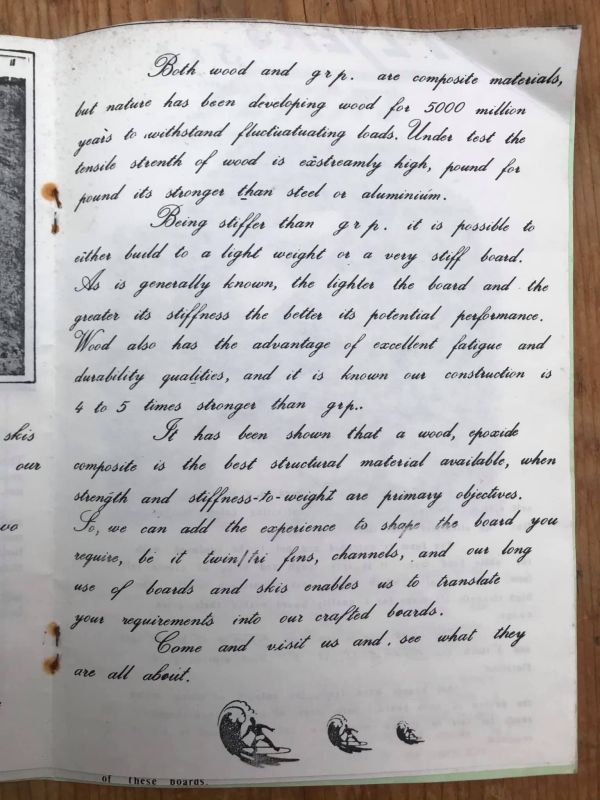 Both wood and g r p. are composite materials,
but nature has been developing wood for 5000 million
years to withstand fluctuatuating loads. Under test the
tensile strenth of wood is exstreamly high, pound for
pound its stronger than steel or aluminium.
Being stiffer than g r p. it is possible to
either build to a light weight or a very stiff board.
As is generally known, the lighter the board and the
greater its stiffness the better its potential performance.
Wood also has the advantage of excellent fatigue and
durability qualities, and it is known our construction is
4 to 5 times stronger than grp..
It has been shown that a wood, epoxide
composite is the best structural material available, when
strength and stiffness-to-weight are primary objectives.
So, we can add the experience to shape the board you
require, be it twin/tri fins, channels, and our long
use of boards and skis enables us to translate
your requirements into our crafted boards.
Come and visit us and. see what they
are all about.
skis
our
wo
of these boards.